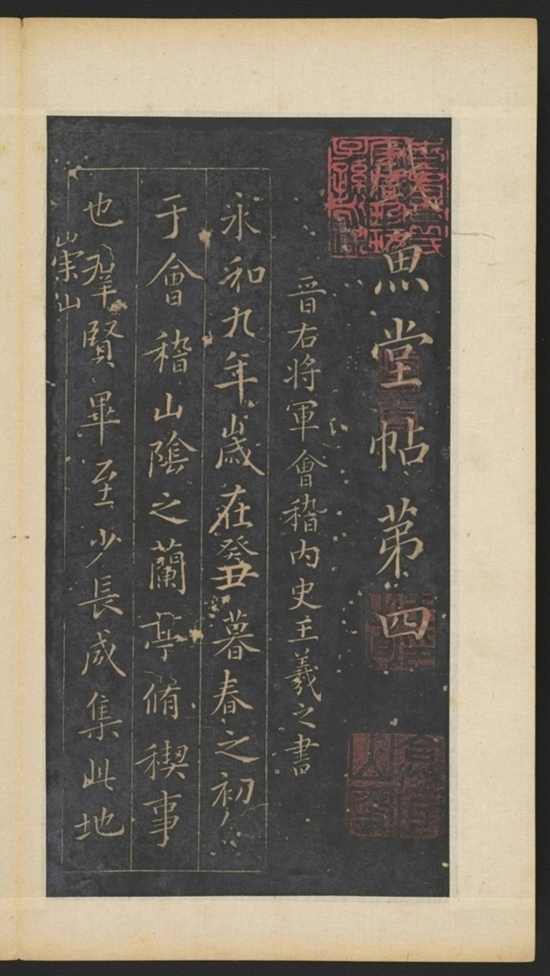 魚堂帖第四
晉右將軍會稽內史王羲之書
永和九年歲在癸丑暮春之初會
于會稽山陰之蘭亭脩稧事
也羣賢畢至少長咸集此地
崇山